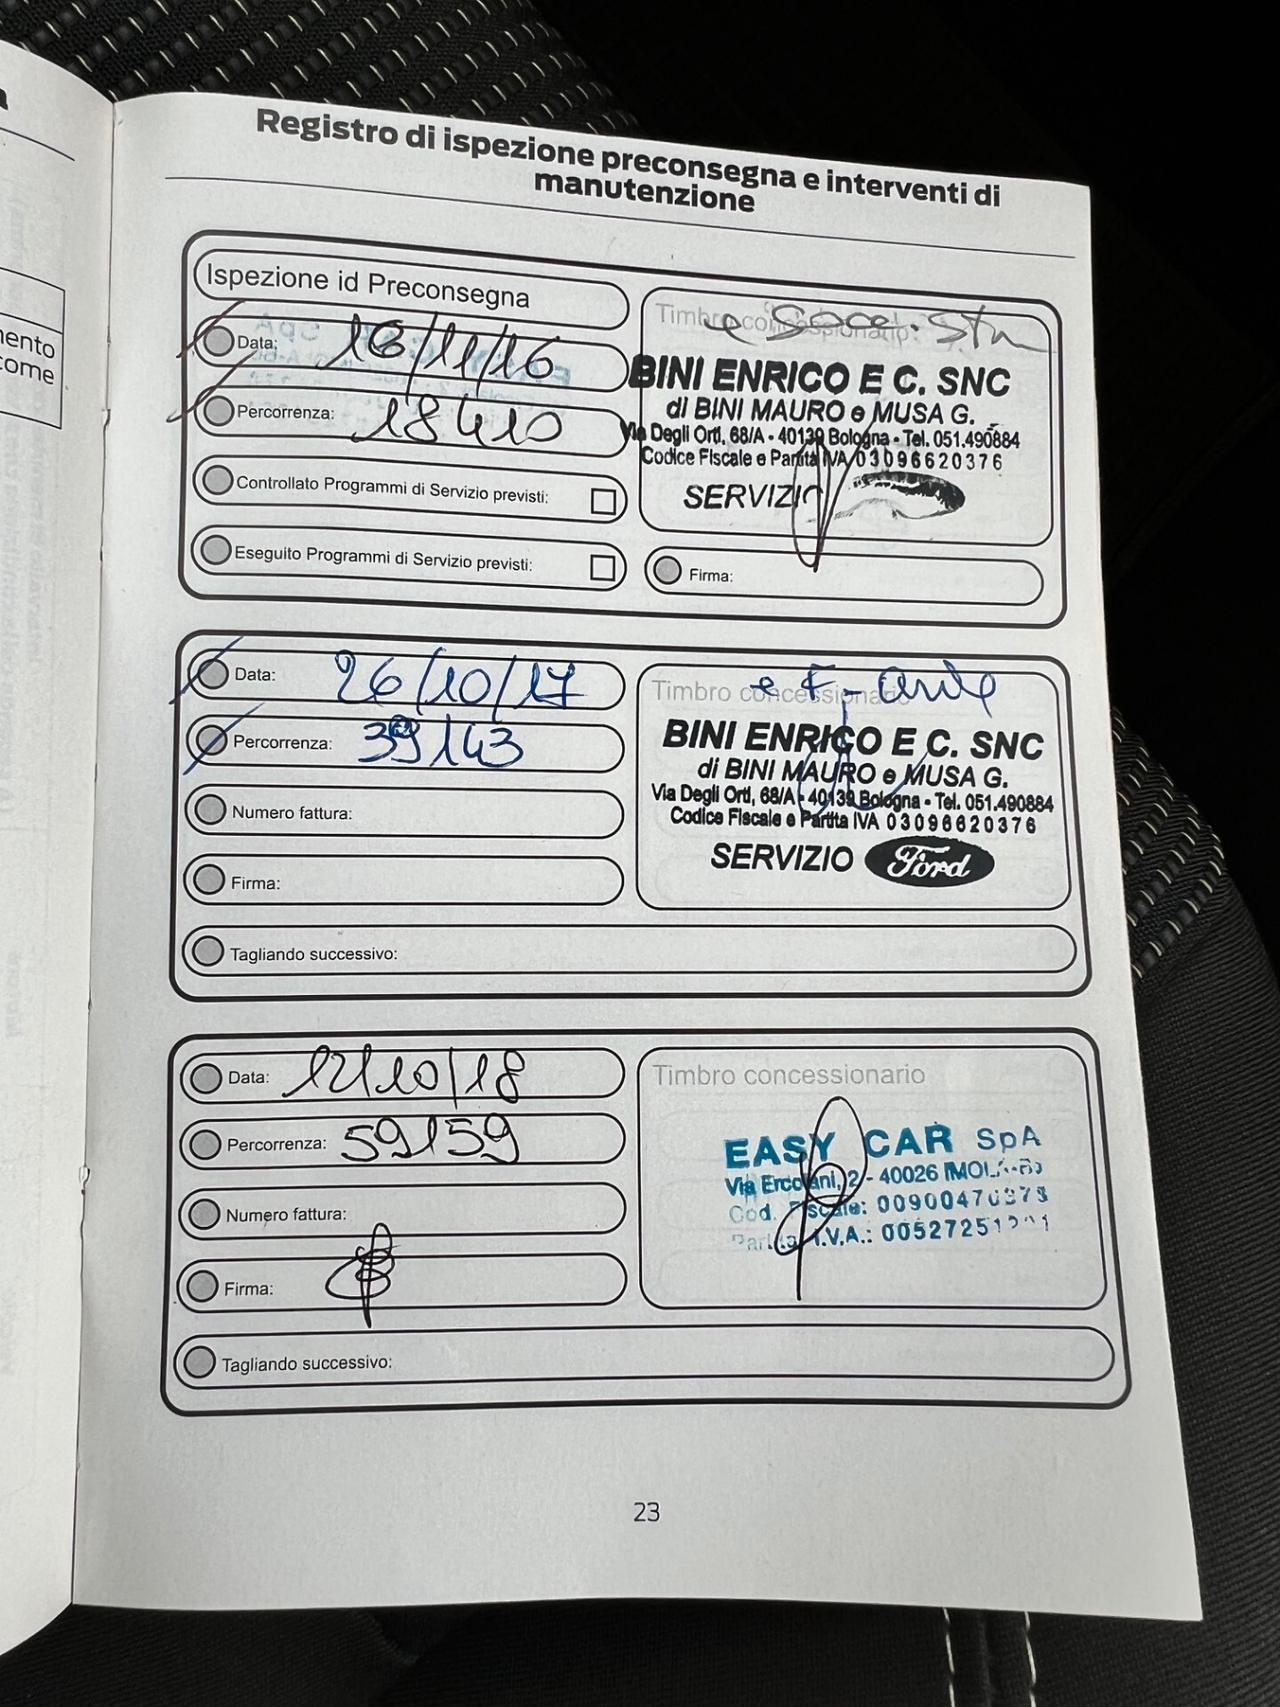 Registro di ispezione preconsegna e interventi di
manutenzione
mento
come
Ispezione id Preconsegna
Data: 18/11/16
Percorrenza: 18410
Controllato Programmi di Servizio previsti:
Eseguito Programmi di Servizio previsti:
Timbro concessionario
BINI ENRICO E C. SNC
di BINI MAURO e MUSA G.
Via Degli Orti, 68/A - 40139 Bologna - Tel. 051.490884
Codice Fiscale e Partita IVA 03096620376
SERVIZIO
Firma:
Data: 26/10/17
Percorrenza: 39143
Numero fattura:
Firma:
Tagliando successivo:
Timbro concessionario
BINI ENRICO E C. SNC
di BINI MAURO e MUSA G.
Via Degli Orti, 68/A - 40139 Bologna - Tel. 051.490884
Codice Fiscale e Partita IVA 03096620376
SERVIZIO Ford
Data: 12/10/18
Percorrenza: 59159
Numero fattura:
Firma:
Tagliando successivo:
Timbro concessionario
EASY CAR SpA
Via Ercolani, 2 - 40026 IMOLA
Cod. Fiscale:
Partita I.V.A.:
23